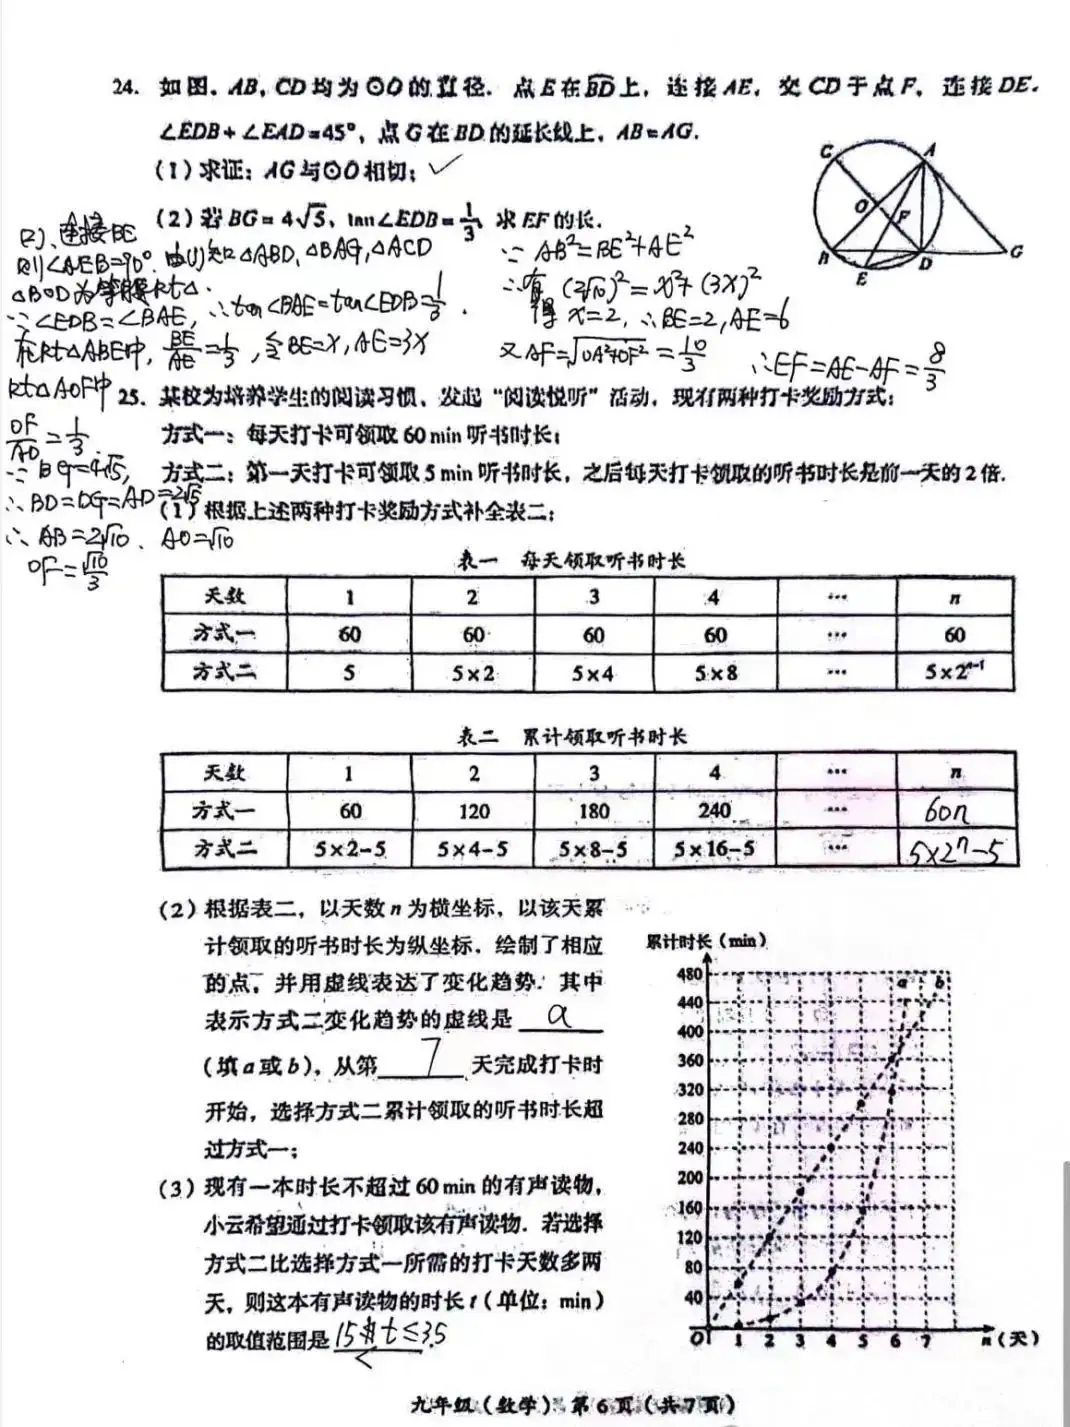 24. 如图，AB，CD均为⊙O的直径．点E在BD上，连接AE，交CD于点F，连接DE．
∠EDB+∠EAD=45°，点G在BD的延长线上，AB=AG．
(1)求证：AG与⊙O相切；✓
(2)若BG=4√5，tan∠EDB=1/3，求EF的长．
C
A
O
F
B
E
D
G
(2)、连接BE
则∠AEB=90°．由(1)知△ABD、△BAG、△ACD
△BOD为等腰Rt△．
∵∠EDB=∠BAE，∴tan∠BAE=tan∠EDB=1/3．
在Rt△ABE中，BE/AE=1/3，令BE=x，AE=3x
Rt△AOF中
OF/AO=1/3．
∵BG=4√5，
∴BD=DG=AD=2√5
∴AB=2√10、AO=√10
OF=√10/3
∵AB²=BE²+AE²
∴有(2√10)²=x²+(3x)²
得x=2，∴BE=2，AE=6
又AF=√OA²+OF²=10/3
∴EF=AE-AF=8/3
25. 某校为培养学生的阅读习惯，发起“阅读悦听”活动，现有两种打卡奖励方式：
方式一：每天打卡可领取60 min听书时长；
方式二：第一天打卡可领取5 min听书时长，之后每天打卡领取的听书时长是前一天的2倍．
(1)根据上述两种打卡奖励方式补全表二：
表一 每天领取听书时长
天数 1 2 3 4 … n
方式一 60 60 60 60 … 60
方式二 5 5×2 5×4 5×8 … 5×2ⁿ⁻¹
表二 累计领取听书时长
天数 1 2 3 4 … n
方式一 60 120 180 240 … 60n
方式二 5×2-5 5×4-5 5×8-5 5×16-5 … 5×2ⁿ-5
(2)根据表二，以天数n为横坐标，以该天累
计领取的听书时长为纵坐标，绘制了相应
的点，并用虚线表达了变化趋势．其中
表示方式二变化趋势的虚线是 a
(填a或b)，从第 7 天完成打卡时
开始，选择方式二累计领取的听书时长超
过方式一；
(3)现有一本时长不超过60 min的有声读物，
小云希望通过打卡领取该有声读物．若选择
方式二比选择方式一所需的打卡天数多两
天，则这本有声读物的时长t(单位：min)
的取值范围是 15<t≤35．
累计时长(min)
480
440
400
360
320
280
240
200
160
120
80
40
O 1 2 3 4 5 6 7 n(天)
a b
九年级(数学) 第6页(共7页)